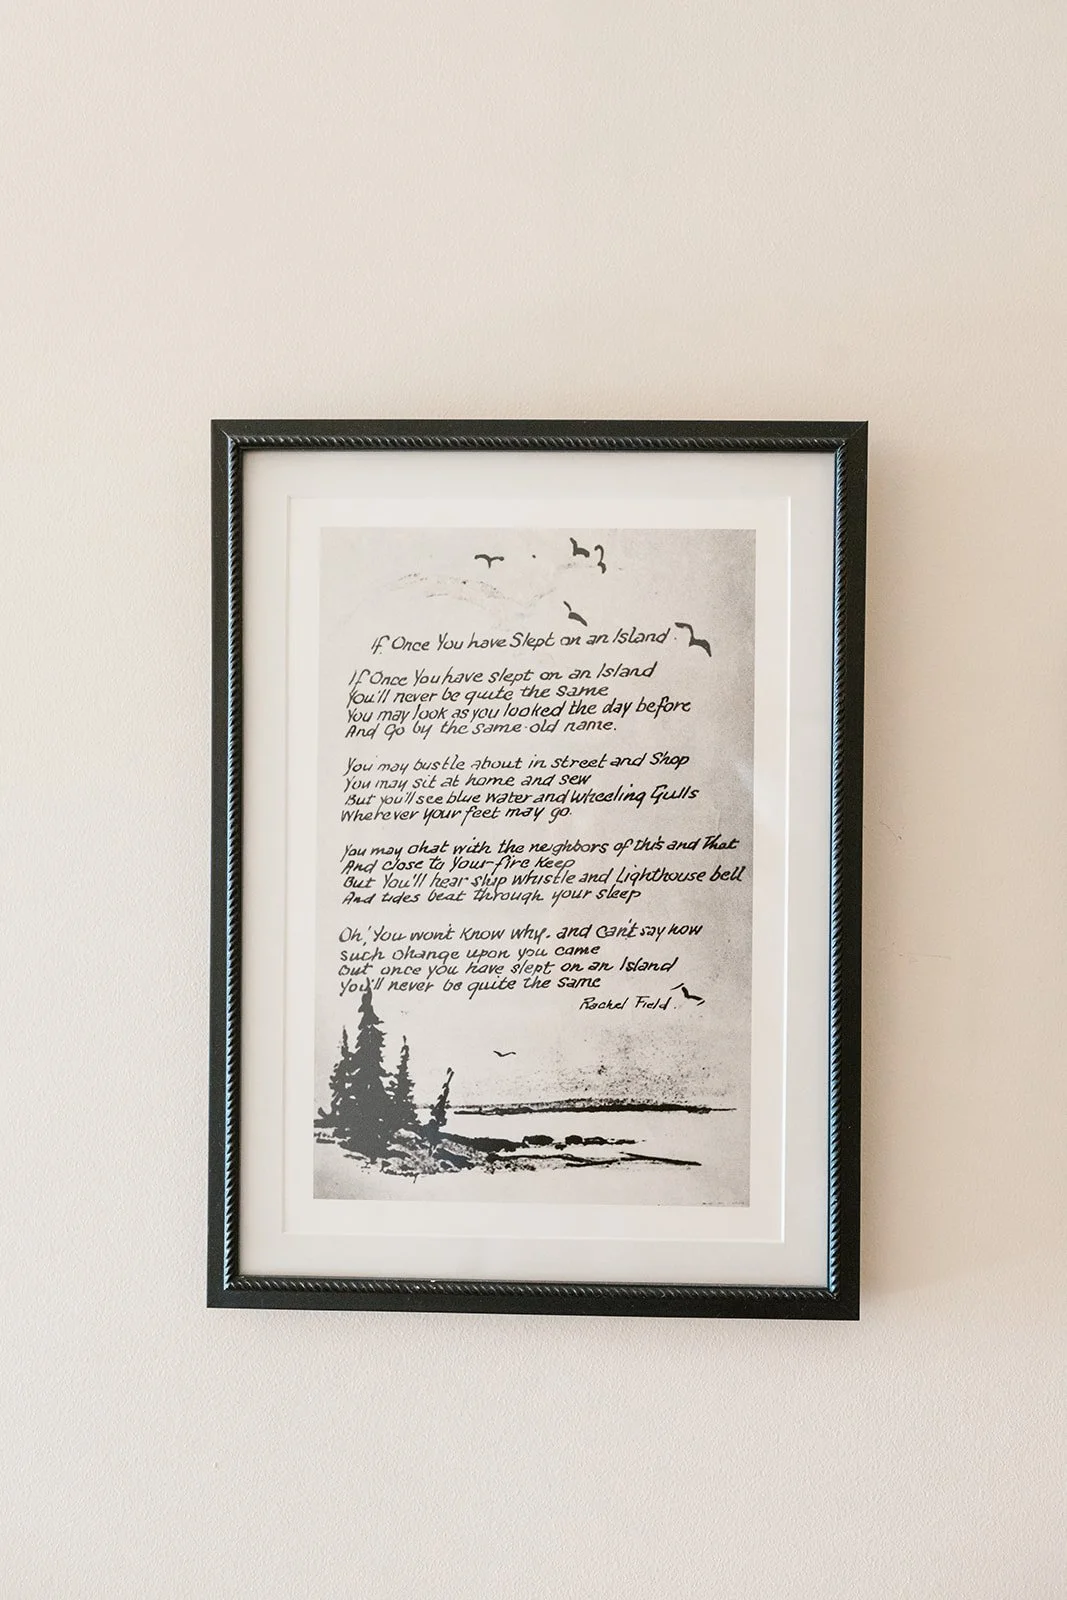 If Once You have Slept on an Island
If Once You have slept on an Island
You'll never be quite the same
You may look as you looked the day before
And Go by the same old name.
You may bustle about in street and Shop
You may sit at home and sew
But you'll see blue water and wheeling Gulls
Wherever your feet may go.
You may chat with the neighbors of this and That
And close to Your fire Keep
But You'll hear ship whistle and Lighthouse bell
And tides beat through your sleep
Oh! You won't Know why, and can't say how
such change upon you came
But once you have slept on an Island
You'll never be quite the same
Rachel Field.